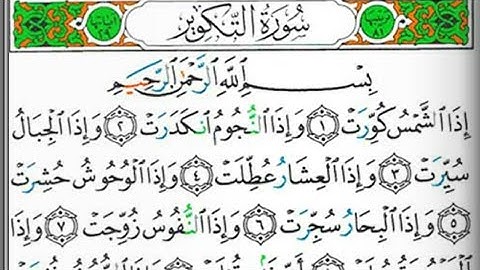 سُورَةُ التَّكْوِيرِ
بِسْمِ ٱللَّهِ ٱلرَّحْمَٰنِ ٱلرَّحِيمِ
إِذَا ٱلشَّمْسُ كُوِّرَتْ ١ وَإِذَا ٱلنُّجُومُ ٱنكَدَرَتْ ٢ وَإِذَا ٱلْجِبَالُ
سُيِّرَتْ ٣ وَإِذَا ٱلْعِشَارُ عُطِّلَتْ ٤ وَإِذَا ٱلْوُحُوشُ حُشِرَتْ
٥ وَإِذَا ٱلْبِحَارُ سُجِّرَتْ ٦ وَإِذَا ٱلنُّفُوسُ زُوِّجَتْ ٧ وَإِذَا